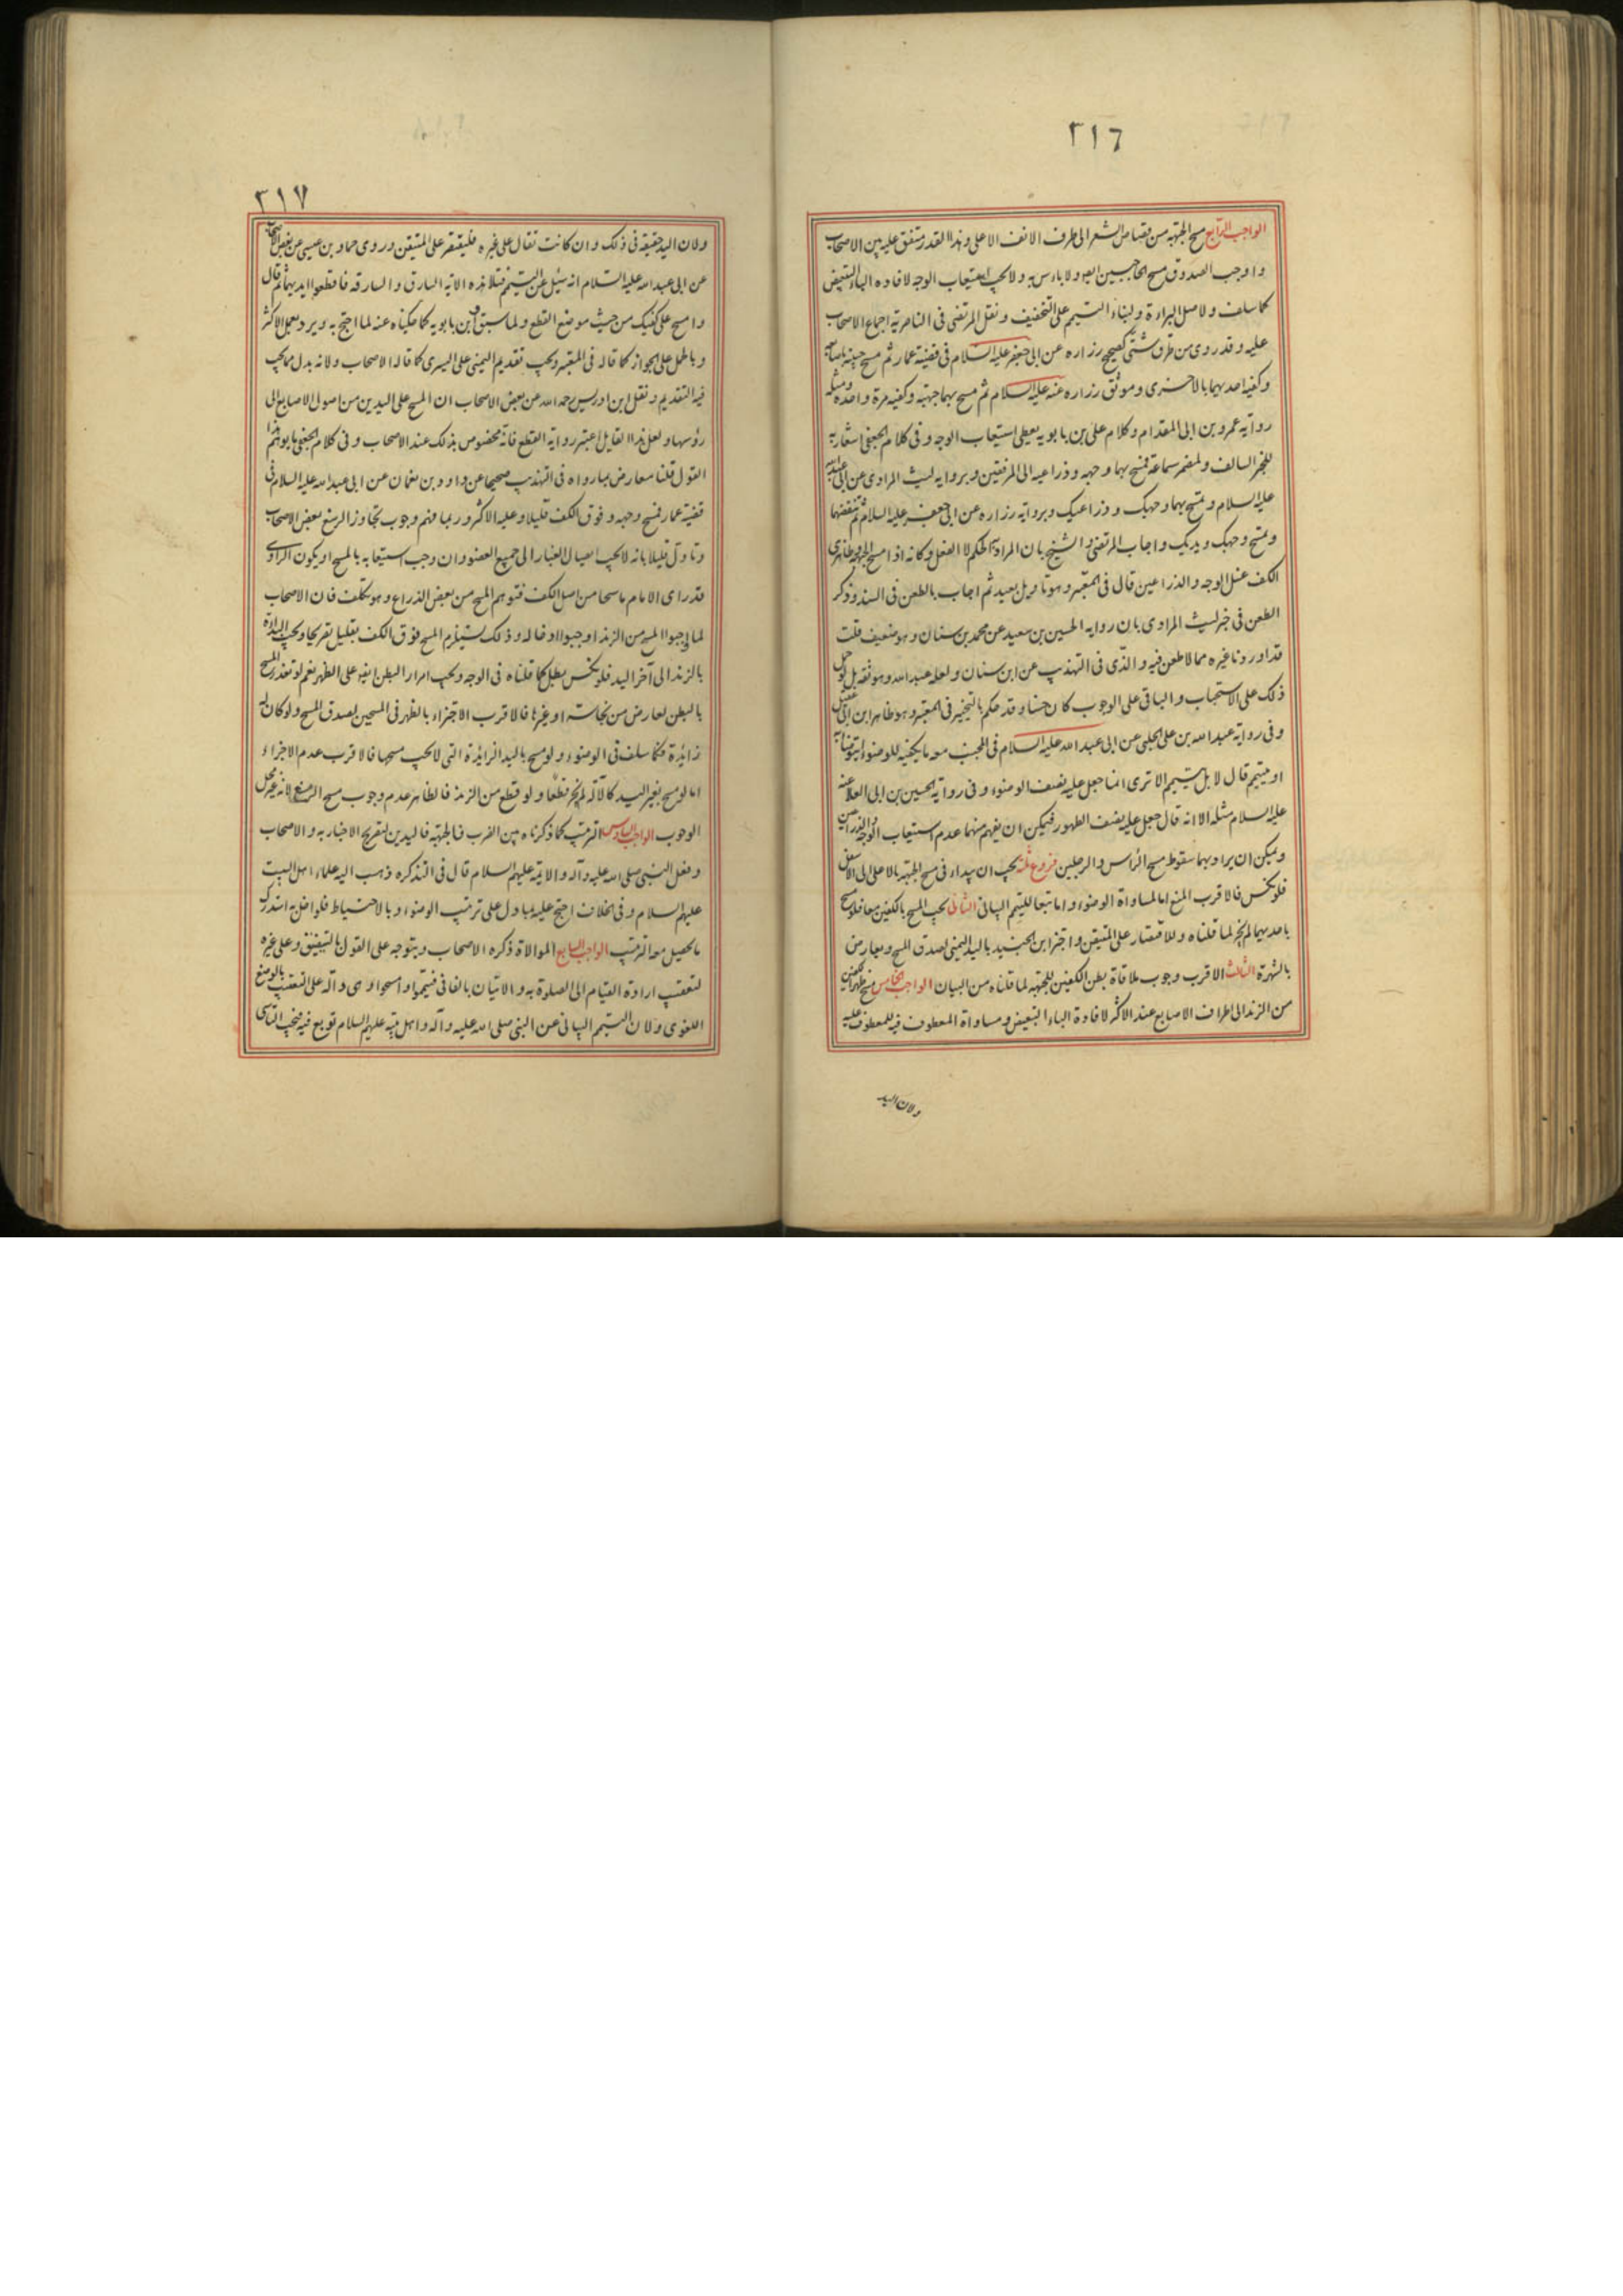 ٣١٦
الواجب الرابع مسح الجبهة من قصاص الشعر الى طرف الانف الاعلى وهذا القدر متفق عليه بين الاصحاب
واوجب الصدوق مسح الحاجبين ايضا ولا باءس به ولا يجب استيعاب الوجه لافاده الباء التبعيض
كما سلف ولاصل البراءة ولبناء التيمم على التخفيف ونقل المرتضى فى الناصرية اجماع الاصحاب
عليه وقد روى من طرق شتى كصحيح زراره عن ابى جعفر عليه السلام فى قضية عمار ثم مسح جبينه باصابعه
وكفيه احديهما بالاخرى وموثق زراره عنه عليه السلام ثم مسح بهما جبهته وكفيه مرة واحده ومثله
رواية عمرو بن ابى المقدام وكلام على بن بابويه يعطى استيعاب الوجه وفى كلام الجعفى اشعار به
للخبر السالف ولمضمر سماعة فمسح بهما وجهه وذراعيه الى المرفقين وبرواية ليث المرادى عن ابى عبدالله
عليه السلام وتمسح بهما وجهك وذراعيك وبرواية زراره عن ابى جعفر عليه السلام ثم تنفضهما
وتمسح وجهك ويديك واجاب المرتضى والشيخ بان المراد به الحكم لا الفعل وكانه اذا مسح الجبهة وظاهرى
الكف غسل الوجه والذراعين قال فى المعتبر وهو تاويل بعيد ثم اجاب بالطعن فى السند وذكر
الطعن فى خبر ليث المرادى بان روايه الحسين بن سعيد عن محمد بن سنان وهو ضعيف قلت
قد اوردنا غيره مما لا طعن فيه والذى فى التهذيب عن ابن سنان ولعله عبدالله وهو ثقه بل لو حمل
ذلك على الاستحباب والباقى على الوجوب كان حسنا وقد حكم بالتخيير فى المعتبر وهو ظاهر ابن ابى عقيل
وفى رواية عبدالله بن على الحلبى عن ابى عبدالله عليه السلام فى الجنب معه ما يكفيه للوضوء ايتوضا به
او يتيمم قال لا بل يتيمم الا ترى انما جعل عليه نصف الوضوء وفى رواية الحسين بن ابى العلا عنه
عليه السلام مثله الا انه قال جعل عليه نصف الطهور فيمكن ان يفهم منهما عدم استيعاب الوجه والذراعين
ويمكن ان يراد بهما سقوط مسح الراس والرجلين فروع ثلثة يجب ان يبداء فى مسح الجبهة بالاعلى الى الاسفل
فلو نكس فالاقرب المنع اما لمساواة الوضوء واما تبعا للتيمم البيانى الثانى يجب المسح بالكفين معا فلو مسح
باحديهما لم يجز لما قلناه وللاقتصار على المتيقن واجتزا ابن الجنيد باليد اليمنى لصدق المسح ويعارض
بالشهرة الثالث الاقرب وجوب ملاقاة بطن الكفين للجبهه لما قلناه من البيان الواجب الخامس مسح ظهر الكفين
من الزند الى اطراف الاصابع عند الاكثر لافادة الباء التبعيض ومساواة المعطوف فيه للمعطوف عليه
ولان اليد
٣١٧
ولان اليد حقيقة فى ذلك وان كانت تقال على غيره فليقتصر على المتيقن وروى حماد بن عيسى عن بعض الاصحاب
عن ابى عبدالله عليه السلام انه سئل عن التيمم فتلا هذه الاية السارق والسارقه فاقطعوا ايديهما ثم قال
وامسح على كفيك من حيث موضع القطع ولما سبق وابن بابويه كما حكيناه عنه لما احتج به ويرد بعمل الاكثر
وبالحمل على الجواز كما قاله فى المعتبر ويجب تقديم اليمنى على اليسرى كما قاله الاصحاب ولانه بدل مما يجب
فيه التقديم ونقل ابن ادريس رحمه الله عن بعض الاصحاب ان المسح على اليدين من اصول الاصابع الى
رؤسها ولعل هذا القايل اعتبر رواية القطع فانه مخصوص بذلك عند الاصحاب وفى كلام الجعفى ما يوهم هذا
القول قلنا معارض بما رواه فى التهذيب صحيحا عن داود بن نعمان عن ابى عبدالله عليه السلام فى
قضية عمار فمسح وجهه وفوق الكف قليلا وعليه الاكثر وربما فهم وجوب تجاوز الرسغ بعض الاصحاب
وتاول قليلا بانه لا يجب ايصال الغبار الى جميع العضو وان وجب استيعابه بالمسح او يكون الراوى
قد راى الامام ماسحا من اصل الكف فتوهم المسح من بعض الذراع وهو تكلف فان الاصحاب
لما اوجبوا المسح من الزند اوجبوا ادخاله وذلك يستلزم المسح فوق الكف بقليل تقريبا ويجب البداءة
بالزند الى آخر اليد فلو نكس بطل كما قلناه فى الوجه ويجب امرار البطن ايضا على الظهر نعم لو تعذر المسح
بالبطن لعارض من نجاسته او غيرها فالاقرب الاجتزاء بالظهر فى المسحين لصدق المسح ولو كان له
زائدة فكما سلف فى الوضوء ولو مسح باليد الزائدة التى لا يجب مسحها فالاقرب عدم الاجزاء
اما لو مسح بغير اليد كالآلة لم يجز قطعا ولو قطع من الزند فالظاهر عدم وجوب مسح الرسغ لانه غير محل
الوجوب الواجب السادس الترتيب كما ذكرناه بين الضرب فالجبهة فاليدين لتصريح الاخبار به والاصحاب
وفعل النبى صلى الله عليه وآله والايمة عليهم السلام قال فى التذكره ذهب اليه علماء اهل البيت
عليهم السلام وفى الخلاف احتج عليه بما دل على ترتيب الوضوء وبالاحتياط فلو اخل به استدرك
ما يحصل معه الترتيب الواجب السابع الموالاة ذكره الاصحاب ويتوجه على القول بالتضييق وعلى غيره
لتعقب ارادة القيام الى الصلوة به والاتيان بالفا فى فتيمموا وامسحوا وهى دالة على التعقيب بالوضع
اللغوى ولان التيمم البيانى عن النبى صلى الله عليه وآله واهل بيته عليهم السلام توبع فيه فيجب التاسى